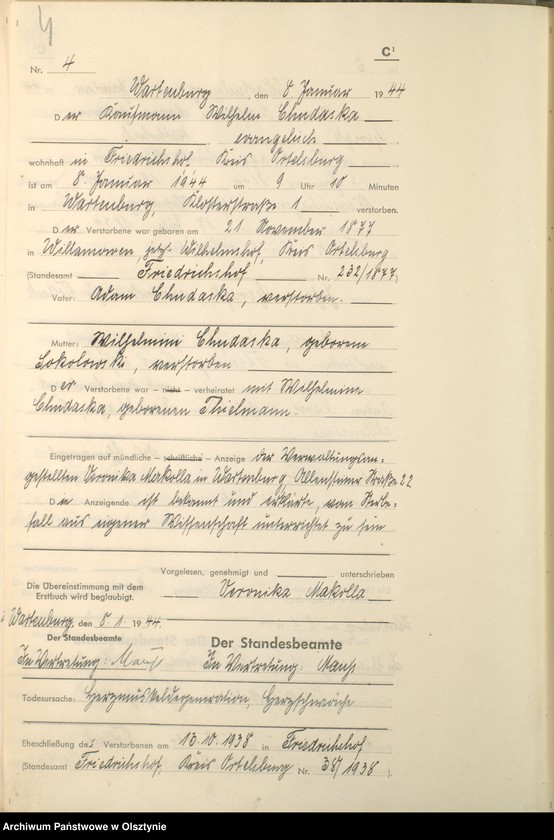 4
C¹
Nr. 4
Wartenburg, den 8. Januar 1944
Der Kaufmann Wilhelm Chudaska
evangelisch
wohnhaft in Friedrichshof, Kreis Ortelsburg
ist am 8. Januar 1944 um 9 Uhr 10 Minuten
in Wartenburg, Klosterstraße 1 verstorben.
Der Verstorbene war geboren am 21 November 1877
in Willamowen, jetzt Wilhelmshof, Kreis Ortelsburg
(Standesamt Friedrichshof Nr. 232/1877)
Vater: Adam Chudaska, verstorben.
Mutter: Wilhelmine Chudaska, geborene
Sokolowski, verstorben
Der Verstorbene war – nicht – verheiratet mit Wilhelmine
Chudaska, geborenen Thielmann.
Eingetragen auf mündliche – schriftliche – Anzeige der Verwaltungsan-
gestellten Veronika Makolla in Wartenburg, Allensteiner Straße 22
Die Anzeigende ist bekannt und erklärte, von Sterbe-
fall aus eigener Wissenschaft unterrichtet zu sein
Vorgelesen, genehmigt und unterschrieben
Die Übereinstimmung mit dem
Erstbuch wird beglaubigt.
Veronika Makolla
Wartenburg, den 8. 1. 1944.
Der Standesbeamte
Der Standesbeamte
In Vertretung:
In Vertretung:
Todesursache: Herzmuskeldegeneration, Herzschwäche
Eheschließung des Verstorbenen am 13.10.1938 in Friedrichshof
(Standesamt Friedrichshof, Kreis Ortelsburg Nr. 38/1938).
Archiwum Państwowe w Olsztynie